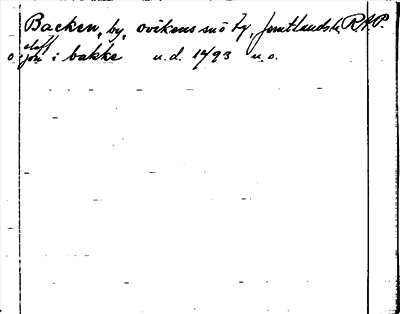 Backen, by, Ovikens sn ö Ty, Jämtlands l. RAP.
oloff
o jon i bakke u.d. 1493 u.o.